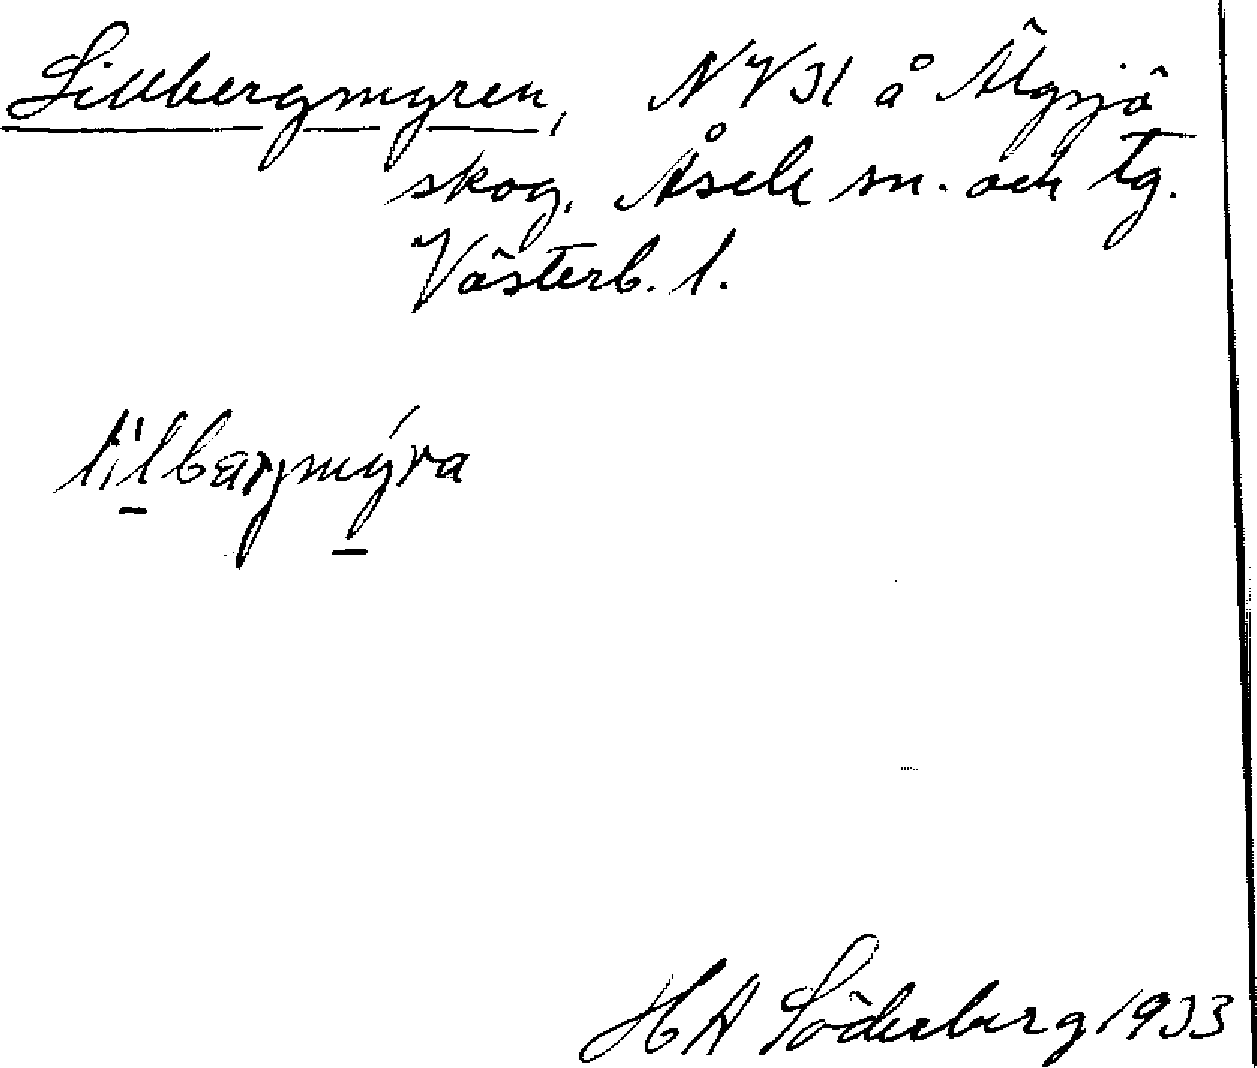 Lillbergmyren, NV H å Älgsjö
skog, Åsele sn. och tg.
Västerb. l.
lilbærjmýra
HA Söderberg 1933